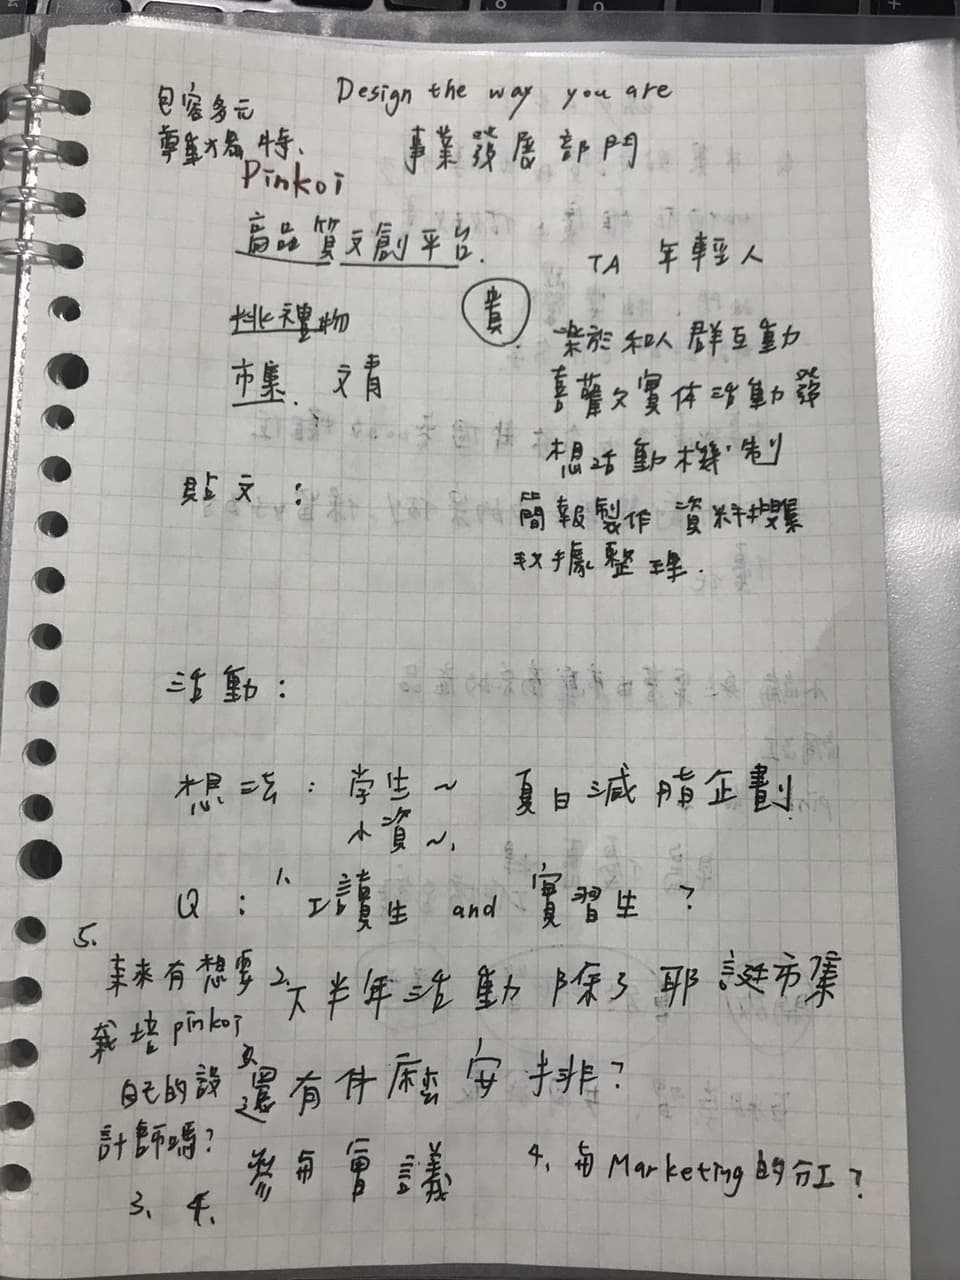 Design the way you are
包容多元
尊重獨特、
事業發展部門
Pinkoi
高品質文創平台.
TA 年輕人
挑禮物
貴
市集、文青
樂於和人群互動
喜歡實体活動發
想活動機制
貼文：
簡報製作 資料搜集
數據整理.
活動：
想法：学生～ 夏日減脂企劃
小資～、
Q：1、工讀生 and 實習生？
2、下半年活動除了耶誕市集
還有什麼安排？
3、參與會議
4、與Marketing的分工？
5、
未來有想要
栽培pinkoi
自己的設
計師嗎？
3、4、